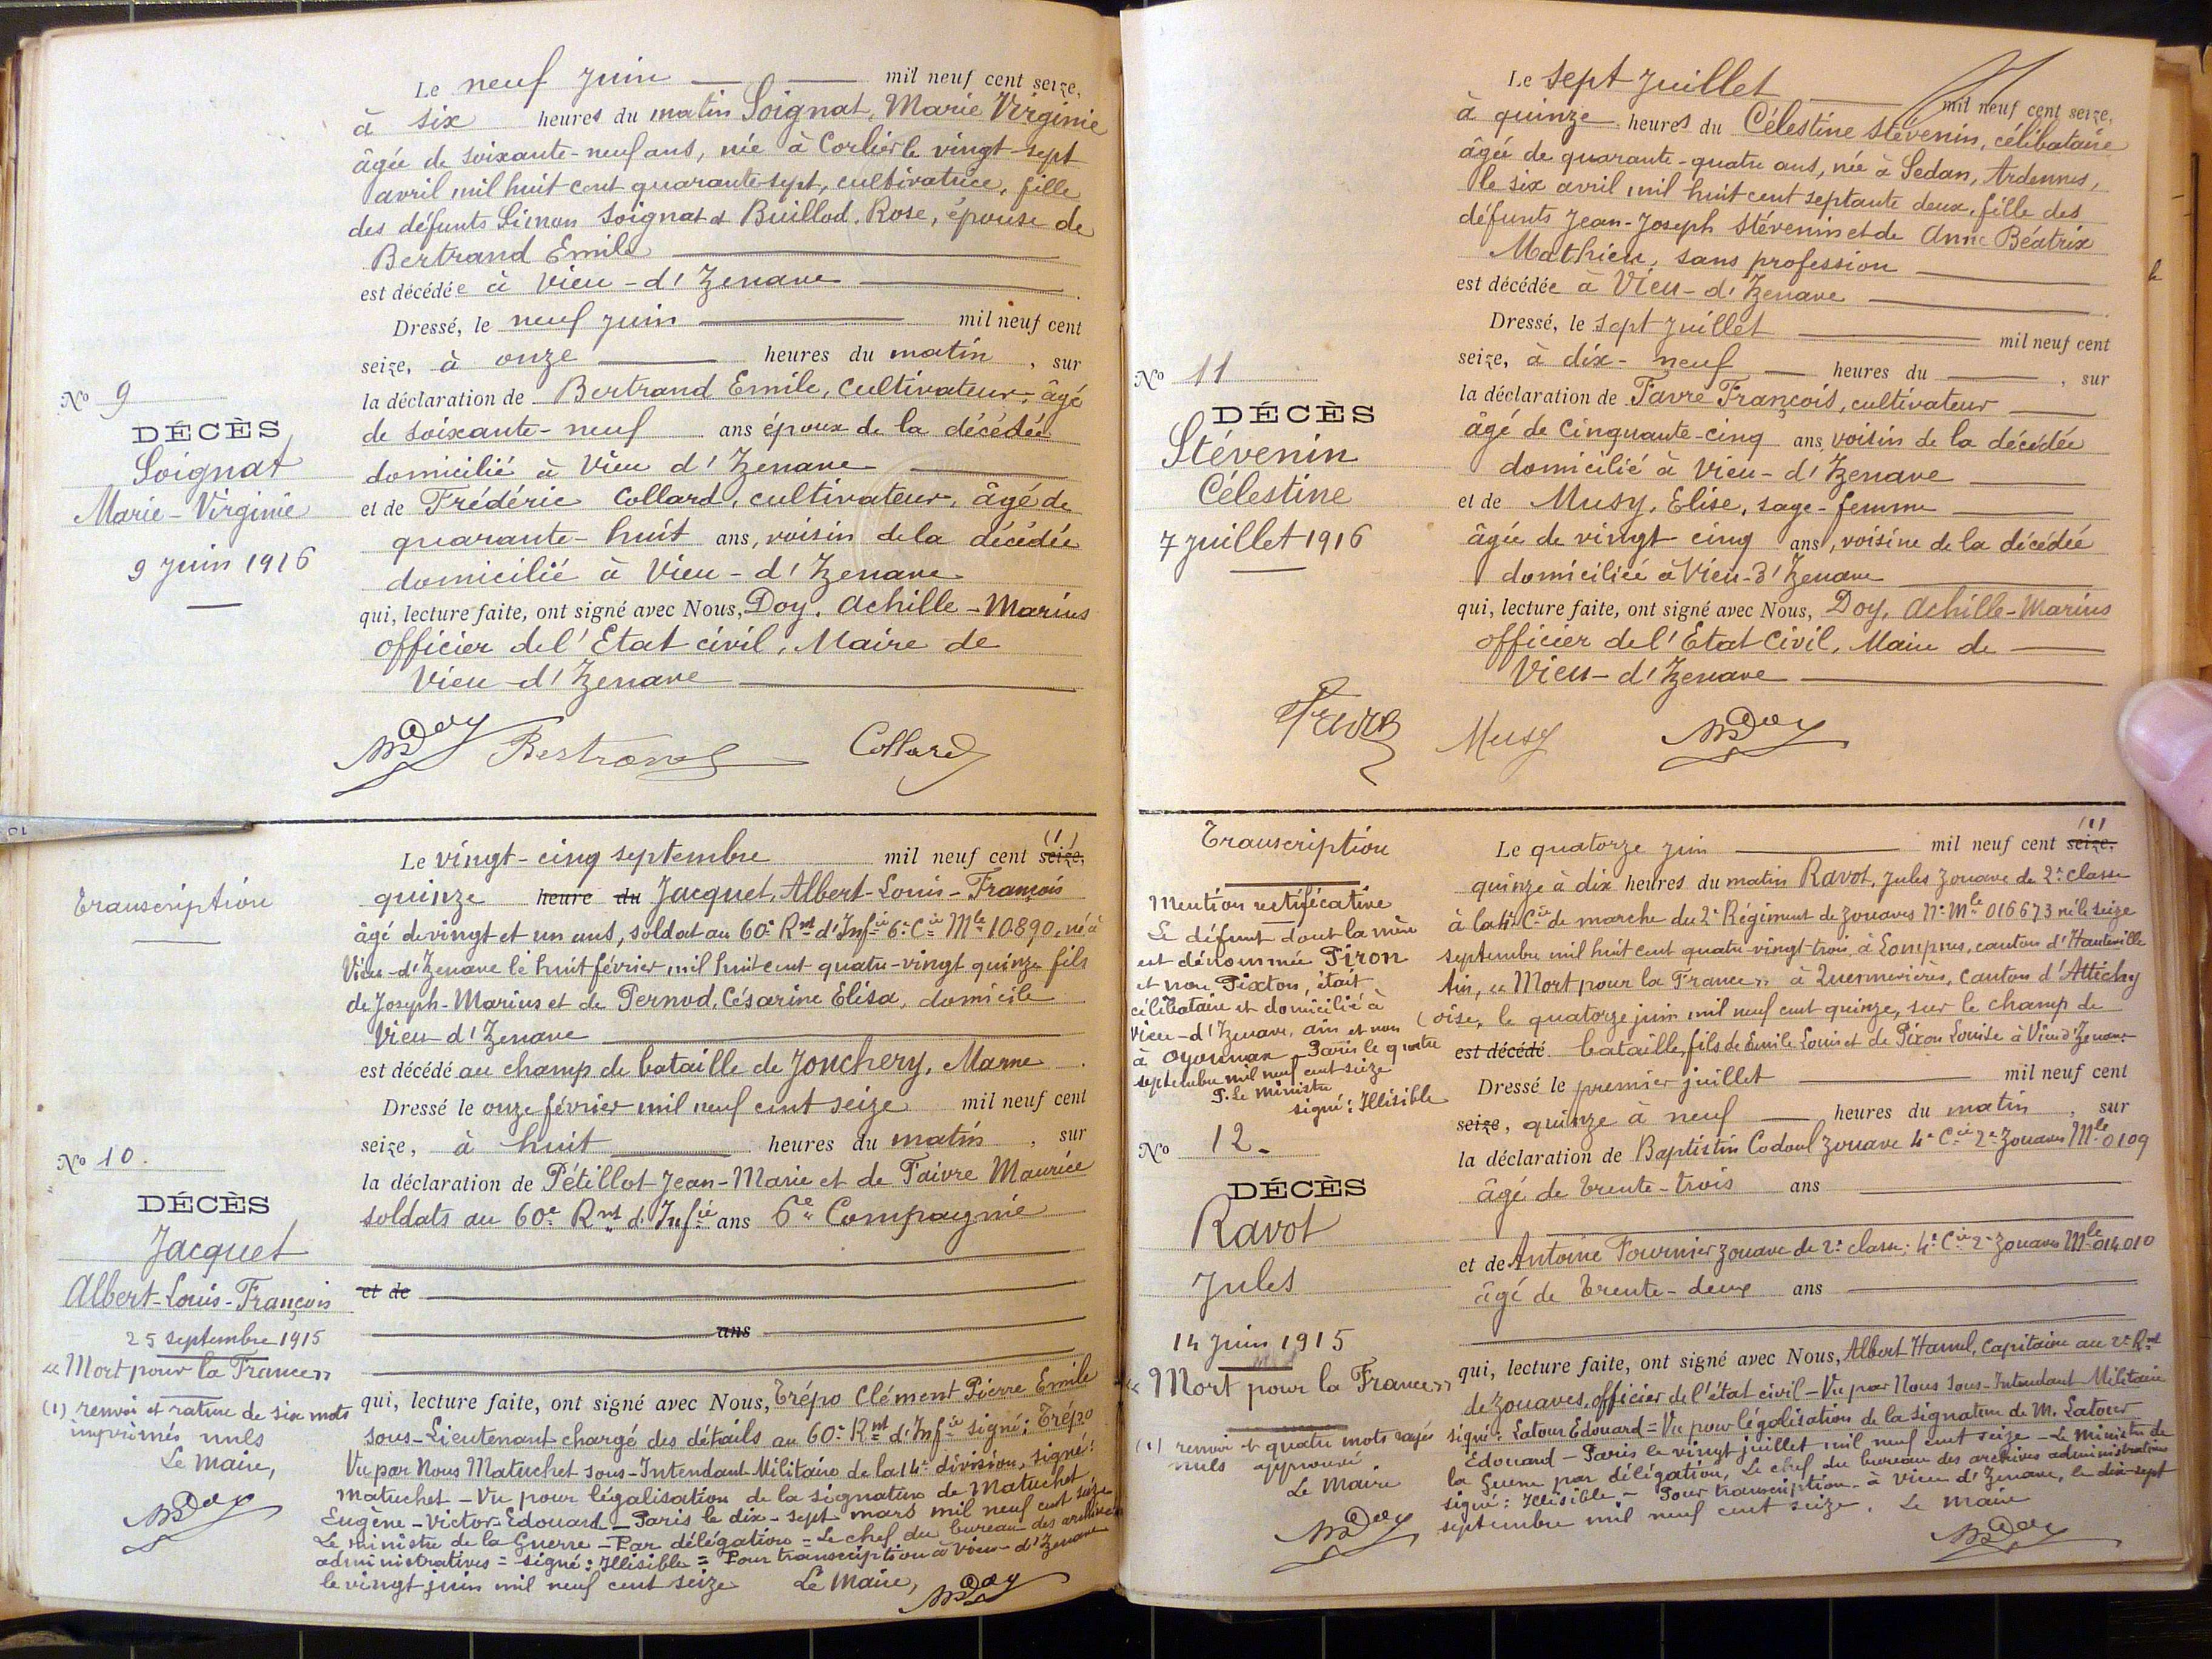 Le neuf juin mil neuf cent seize,
à six heures du matin Soignat, Marie Virginie
âgée de soixante-neuf ans, née à Corlier le vingt-sept
avril mil huit cent quarante sept, cultivatrice, fille
des défunts Simon Soignat & Buillod, Rose, épouse de
Bertrand Emile
est décédée à Vieu-d'Izenave
Dressé, le neuf juin mil neuf cent
seize, à onze heures du matin, sur
la déclaration de Bertrand Emile, cultivateur, âgé
de soixante-neuf ans époux de la décédée
domicilié à Vieu d'Izenave
et de Frédéric Collard, cultivateur, âgé de
quarante-huit ans, voisin de la décédée
domicilié à Vieu-d'Izenave
qui, lecture faite, ont signé avec Nous, Doy, Achille-Marius
officier de l'Etat civil, Maire de
Vieu-d'Izenave
MDoy Bertrand Collard
No 9
DÉCÈS
Soignat
Marie-Virginie
9 juin 1916
Transcription
Le vingt-cinq septembre mil neuf cent seize, (1)
quinze heure du Jacquet, Albert-Louis-François
âgé de vingt et un ans, soldat au 60e Rnt d'Infie 6e Cie Mle 10890, né à
Vieu-d'Izenave le huit février mil huit cent quatre-vingt quinze fils
de Joseph-Marius et de Pernod, Césarine Elisa, domicile
Vieu d'Izenave
est décédé au champ de bataille de Jonchery, Marne
Dressé le onze février mil neuf cent seize mil neuf cent
seize, à huit heures du matin, sur
la déclaration de Pétillot Jean-Marie et de Faivre Maurice
soldats au 60e Rnt d'Infie ans 6e Compagnie
et de
ans
qui, lecture faite, ont signé avec Nous, Trépo Clément Pierre Emile
sous-Lieutenant chargé des détails au 60e Rnt d'Infie signé: Trépo
Vu par Nous Matuchet sous-Intendant Militaire de la 14e division, signé:
Matuchet - Vu pour légalisation de la signature de Matuchet
Eugène-Victor-Edouard - Paris le dix-sept mars mil neuf cent seize
Le ministre de la Guerre - Par délégation = Le chef du bureau des archives
administratives = signé: Illisible = Pour transcription à Vieu-d'Izenave
le vingt juin mil neuf cent seize Le Maire, MDoy
No 10.
DÉCÈS
Jacquet
Albert-Louis-François
25 septembre 1915
"Mort pour la France"
(1) renvoi et rature de six mots
imprimés nuls
Le Maire,
MDoy
Le sept juillet mil neuf cent seize,
à quinze heures du Célestine Stévenin, célibataire
âgée de quarante-quatre ans, née à Sedan, Ardennes,
le six avril mil huit cent septante deux, fille des
défunts Jean-Joseph Stévenin et de Anne Béatrix
Mathieu, sans profession
est décédée à Vieu-d'Izenave
Dressé, le sept juillet mil neuf cent
seize, à dix-neuf heures du, sur
la déclaration de Favre François, cultivateur
âgé de cinquante-cinq ans, voisin de la décédée
domicilié à Vieu-d'Izenave
et de Musy, Elise, sage-femme
âgée de vingt cinq ans, voisine de la décédée
domiciliée à Vieu-d'Izenave
qui, lecture faite, ont signé avec Nous, Doy, Achille-Marius
officier de l'Etat Civil, Maire de
Vieu-d'Izenave
Favre Musy MDoy
No 11
DÉCÈS
Stévenin
Célestine
7 juillet 1916
Transcription
Mention rectificative
Le défunt dont la mère
est dénommée Piron
et non Pixton, était
célibataire et domicilié à
Vieu-d'Izenave, Ain et non
à Oyonnax - Paris le quatre
septembre mil neuf cent seize
P. Le Ministre
signé: Illisible
No 12.
DÉCÈS
Ravot
Jules
14 juin 1915
"Mort pour la France"
(1) renvoi & quatre mots rayés
nuls approuvé
Le Maire
MDoy
Le quatorze juin mil neuf cent seize, (1)
quinze à dix heures du matin Ravot, Jules Zouave de 2e classe
à la 4e Cie de marche du 2e Régiment de Zouaves No Mle 016673 né le seize
septembre mil huit cent quatre-vingt trois à Lompnes, canton d'Hauteville
Ain, "Mort pour la France" à Quennevières, canton d'Attichy
(Oise, le quatorze juin mil neuf cent quinze, sur le champ de
est décédé bataille, fils de Emile Louis et de Pixon Louise à Vieu d'Izenave
Dressé le premier juillet mil neuf cent
seize, quinze à neuf heures du matin, sur
la déclaration de Baptistin Codoul Zouave 4e Cie 2e Zouaves Mle 0109
âgé de trente-trois ans
et de Antoine Fournier zouave de 2e classe, 4e Cie 2e Zouaves Mle 014010
âgé de trente-deux ans
qui, lecture faite, ont signé avec Nous, Albert Hamel, Capitaine au 2e Rnt
de Zouaves, officier de l'état civil - Vu par Nous Sous-Intendant Militaire
signé: Latour Edouard = Vu pour légalisation de la signature de M. Latour
Edouard - Paris le vingt juillet mil neuf cent seize - Le Ministre de
la Guerre par délégation, Le chef du bureau des archives administratives
signé: Illisible - Pour transcription à Vieu d'Izenave, le dix-sept
septembre mil neuf cent seize. Le Maire
MDoy